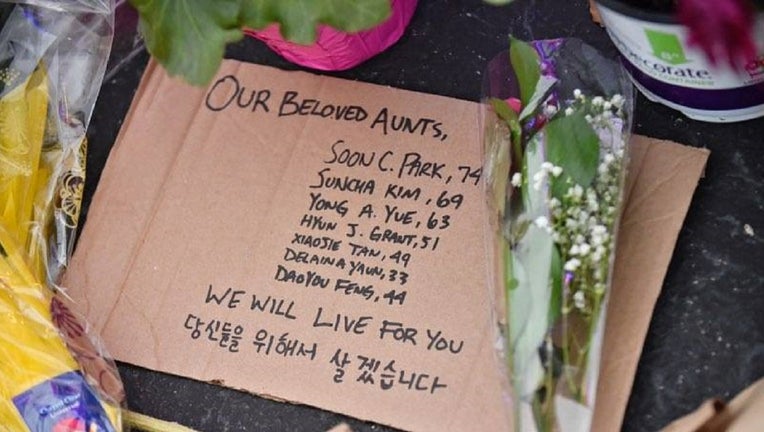 OUR BELOVED AUNTS,
SOON C. PARK, 74
SUNCHA KIM, 69
YONG A. YUE, 63
HYUN J. GRANT, 51
XIAOJIE TAN, 49
DELAINA YAUN, 33
DAOYOU FENG, 44
WE WILL LIVE FOR YOU
당신들을 위해서 살겠습니다
decorate